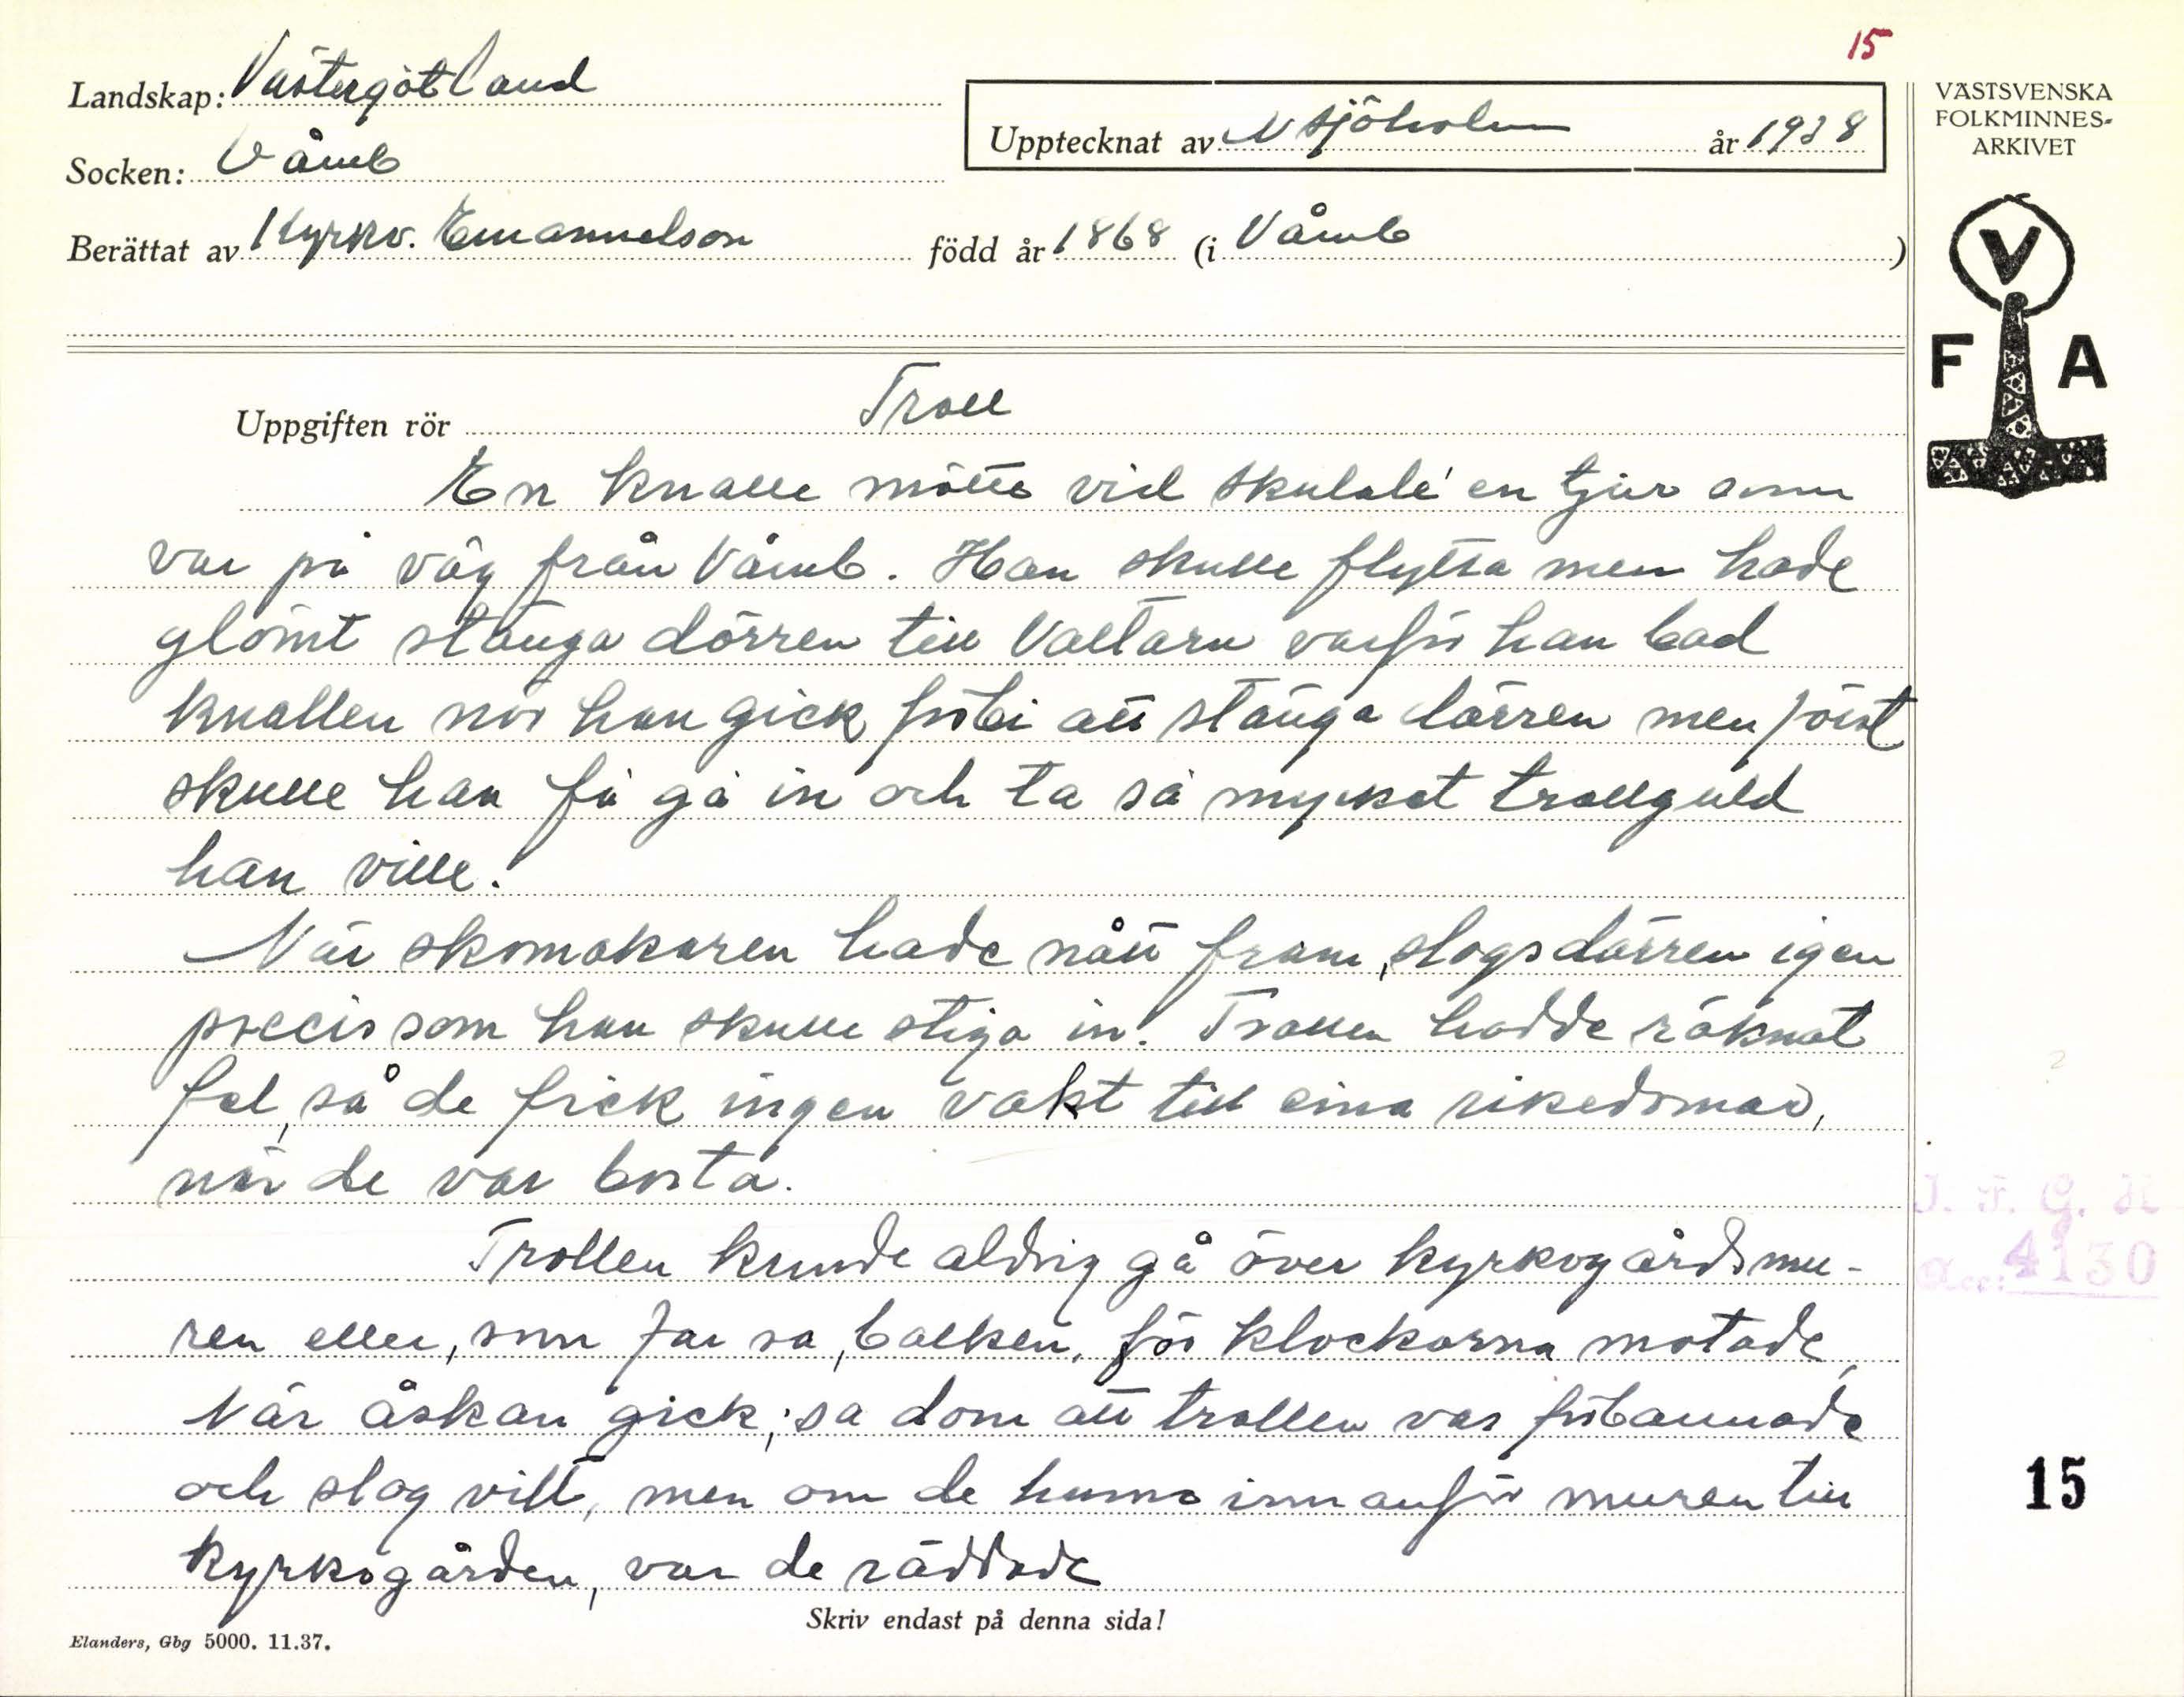 15
Landskap: Västergötland
Upptecknat av N Sjöholm år 1938
VÄSTSVENSKA
FOLKMINNES-
ARKIVET
Socken: Våmb
Berättat av Kyrkv. Emanuelson född år 1868 (i Våmb)
V
F A
Uppgiften rör Troll
En knalle mötte vid skulale' en tjur som
var på väg från Våmb. Han skulle flytta men hade
glömt stänga dörren till Valtarn varför han bad
knallen när han gick förbi att stänga dörren men först
skulle han få gå in och ta så mycket trollguld
han ville.
När skomakaren hade nått fram, slogs dörren igen
precis som han skulle stiga in. Trollen hadde räknat
fel, så de fick ingen vakt till sina rikedomar,
när de var borta.
Trollen kunde aldrig gå över kyrkogårdsmu-
ren eller, som far sa, balken, för klockorna motade,
När åskan gick, sa dom att trollen var förbannade
och slog vilt, men om de hunno innanför muren till
kyrkogården, var de räddade
J. F. G. H
Acc: 4130
15
Skriv endast på denna sida!
Elanders, Gbg 5000. 11.37.